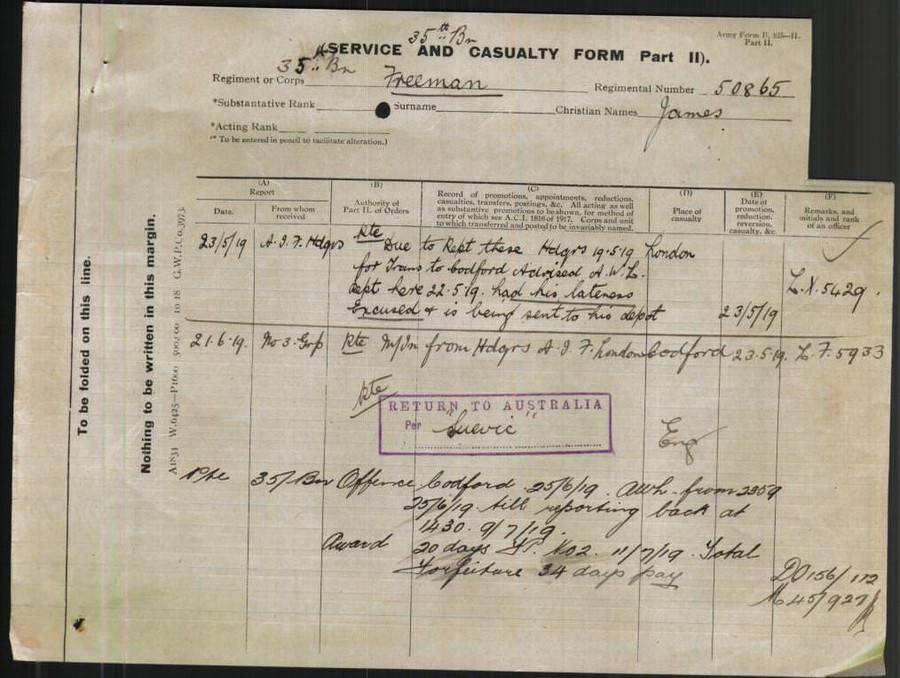 Army Form B. 103—II.
Part II.
35th Bn
(SERVICE AND CASUALTY FORM Part II).
35th Bn
Regiment or Corps Freeman Regimental Number 50865
*Substantative Rank Surname Christian Names James
*Acting Rank
(* To be entered in pencil to facilitate alteration.)
To be folded on this line.
Nothing to be written in this margin.
(A)
Report
Date. From whom received
(B)
Authority of Part II. of Orders
(C)
Record of promotions, appointments, reductions, casualties, transfers, postings, &c. All acting as well as substantive promotions to be shown, for method of entry of which see A.C.I. 1816 of 1917. Corps and unit to which transferred and posted to be invariably named.
(D)
Place of casualty
(E)
Date of promotion, reduction, reversion, casualty, &c.
(F)
Remarks, and initials and rank of an officer
Pte
23/5/19 A.I.F. Hdqrs Due to Rept these Hdqrs 19.5.19 London
for Trans to Codford Advised A.W.L.
Rept here 22.5.19. had his lateness L.N.5429.
Excused & is being sent to his depot 23/5/19
21.6.19. No 3. Grp Pte M/In from Hdqrs A.I.F. London Codford 23.5.19. L.F. 5933
Pte
RETURN TO AUSTRALIA
Per "Suevic"
Eng
Pte 35/Bn Offence Codford 25/6/19. AWL. from 2359
25/6/19. till reporting back at
1430. 9/7/19.
Award 20 days F.P. No2. 11/7/19. Total
Forfeiture 34 days pay
DO156/172